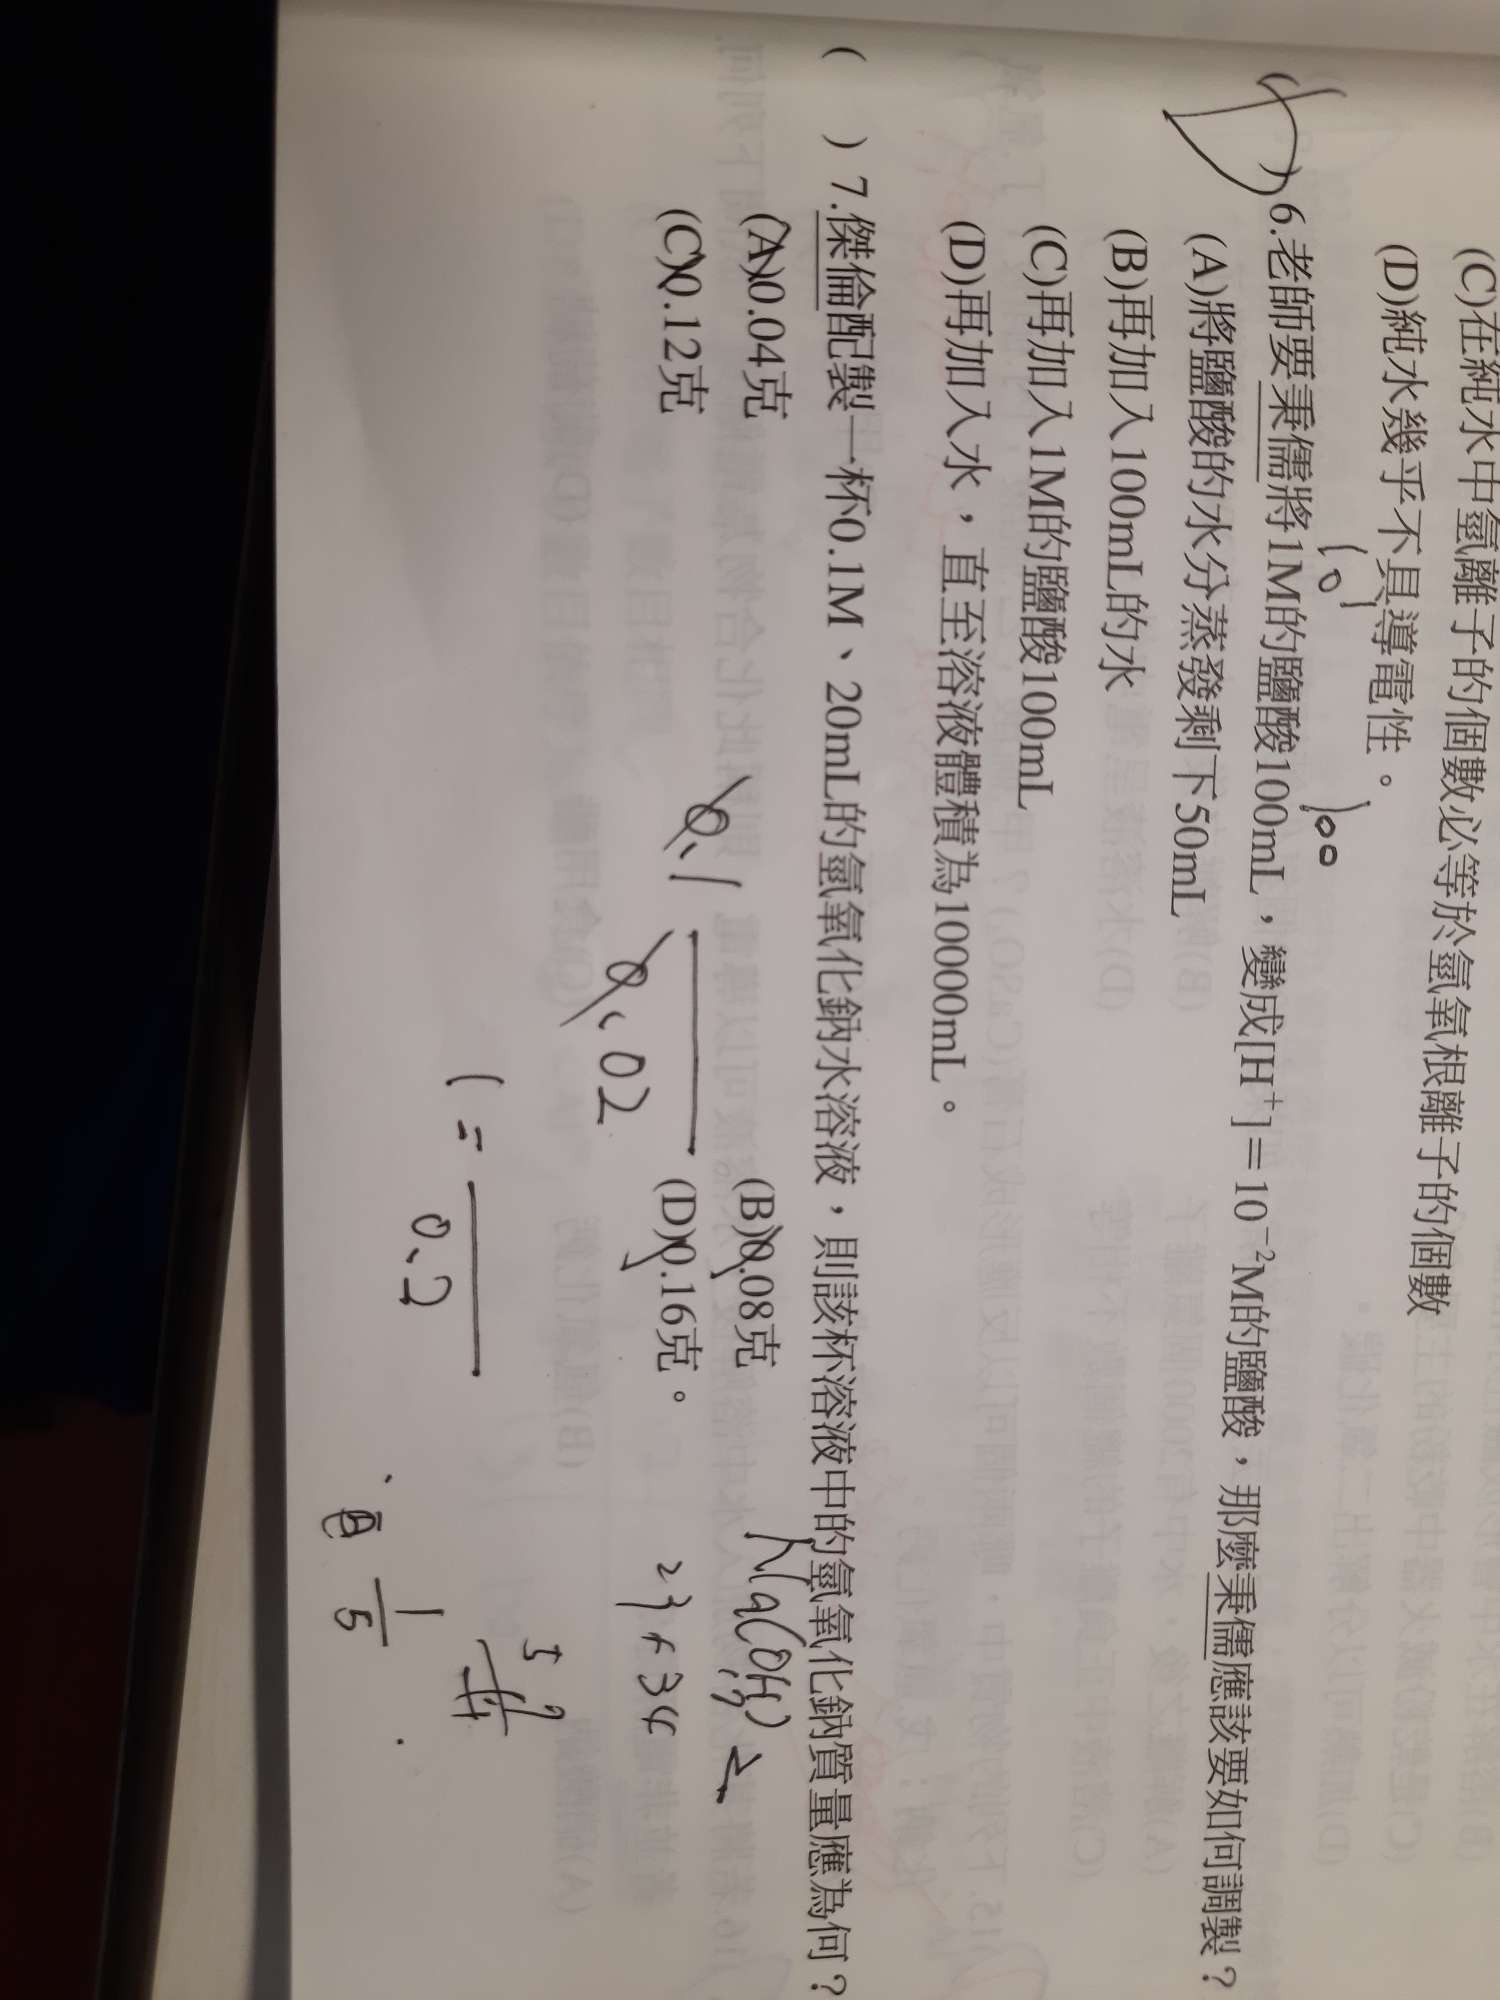 (C)在純水中氫離子的個數必等於氫氧根離子的個數
(D)純水幾乎不具導電性。
( )6.老師要秉儒將1M的鹽酸100mL，變成[H⁺]＝10⁻²M的鹽酸，那麼秉儒應該要如何調製？
(A)將鹽酸的水分蒸發剩下50mL
(B)再加入100mL的水
(C)再加入1M的鹽酸100mL
(D)再加入水，直至溶液體積為10000mL。
( )7.傑倫配製一杯0.1M、20mL的氫氧化鈉水溶液，則該杯溶液中的氫氧化鈉質量應為何？
(A)0.04克 (B)0.08克
(C)0.12克 (D)0.16克。
100
0.1
0.02
1=
0.2
Na(OH)
23+34
1
5